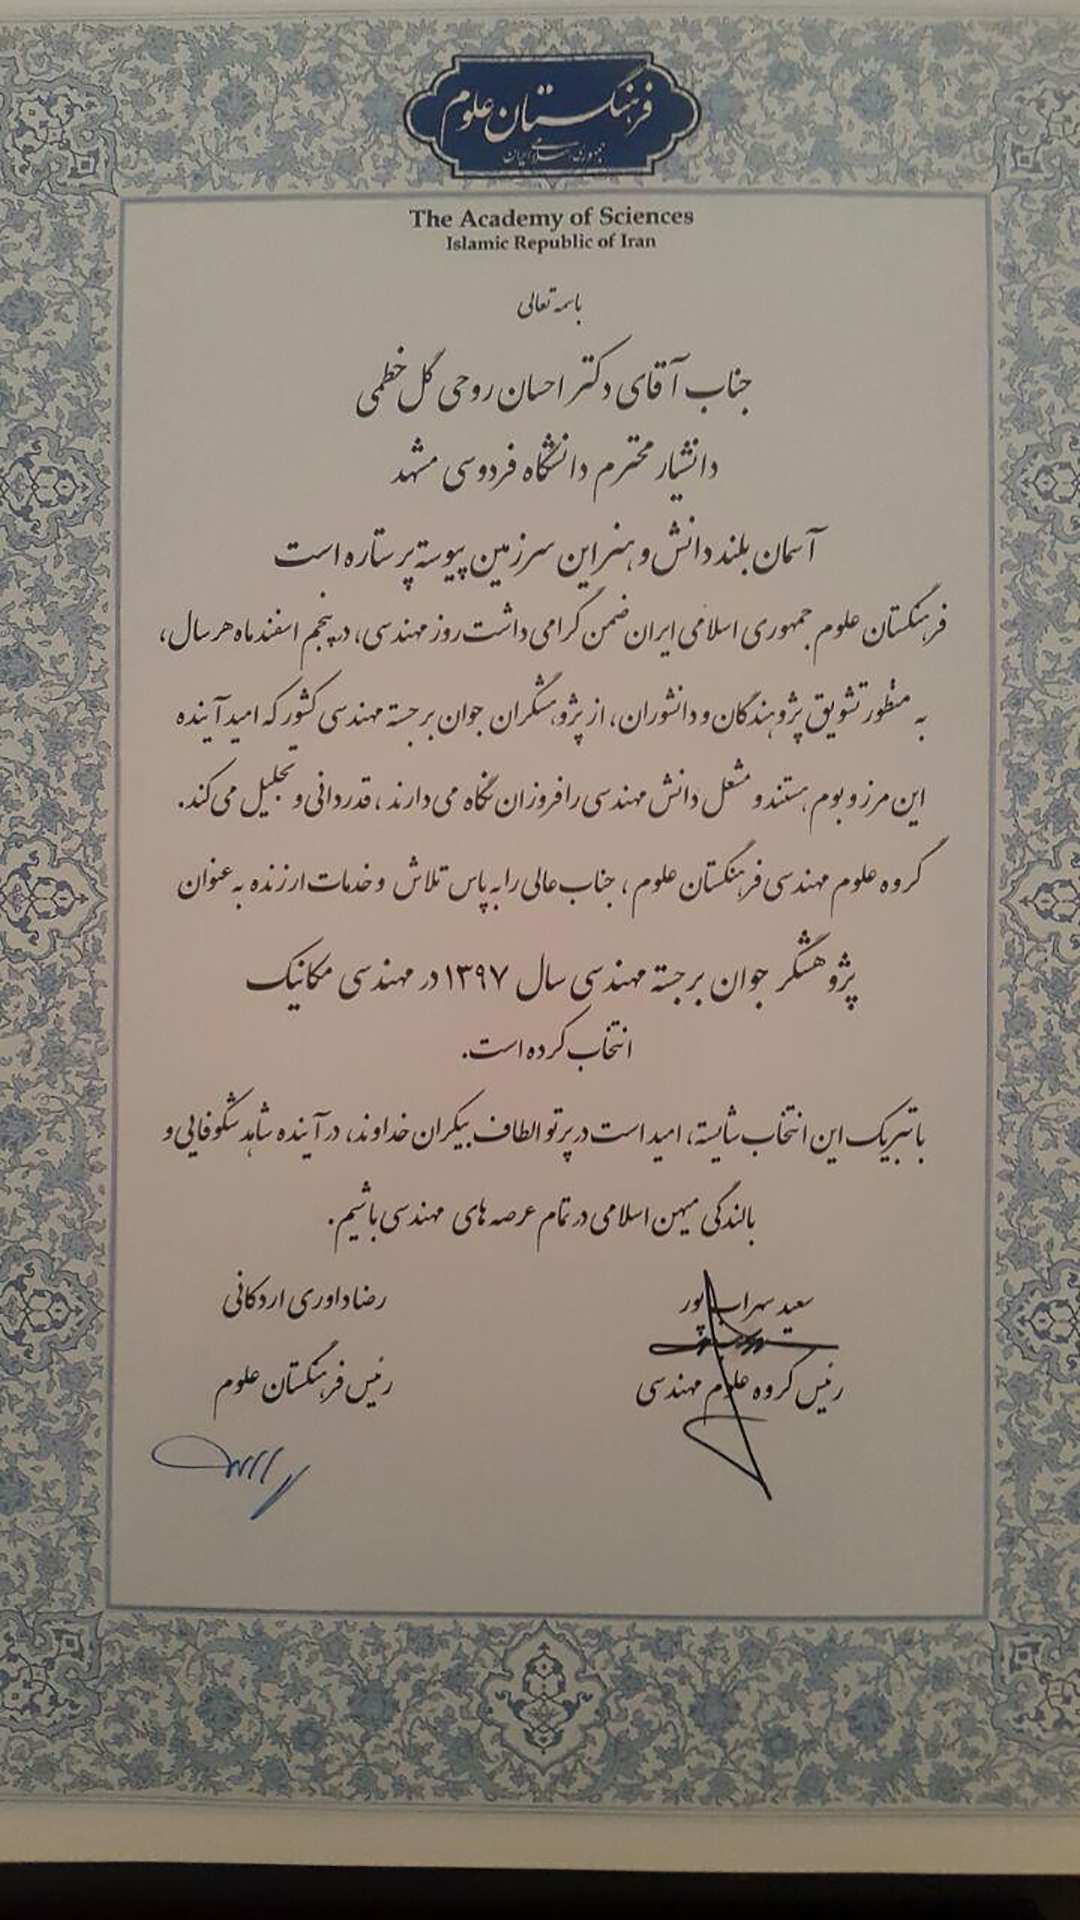 فرهنگستان علوم
جمهوری اسلامی ایران
The Academy of Sciences
Islamic Republic of Iran
باسمه تعالی
جناب آقای دکتر احسان روحی گل خطمی
دانشیار محترم دانشگاه فردوسی مشهد
آسمان بلند دانش و هنر این سرزمین پیوسته پر ستاره است
فرهنگستان علوم جمهوری اسلامی ایران ضمن گرامی داشت روز مهندسی، در پنجم اسفند ماه هر سال،
به منظور تشویق پژوهندگان و دانشوران، از پژوهشگران جوان برجسته مهندسی کشور که امید آینده
این مرز و بوم هستند و مشعل دانش مهندسی را فروزان نگاه می دارند، قدردانی و تجلیل می کند.
گروه علوم مهندسی فرهنگستان علوم، جناب عالی را به پاس تلاش و خدمات ارزنده به عنوان
پژوهشگر جوان برجسته مهندسی سال ۱۳۹۷ در مهندسی مکانیک
انتخاب کرده است.
با تبریک این انتخاب شایسته، امید است در پرتو الطاف بیکران خداوند، در آینده شاهد شکوفایی و
بالندگی میهن اسلامی در تمام عرصه های مهندسی باشیم.
سعید سهراب پور
رئیس گروه علوم مهندسی
رضا داوری اردکانی
رئیس فرهنگستان علوم